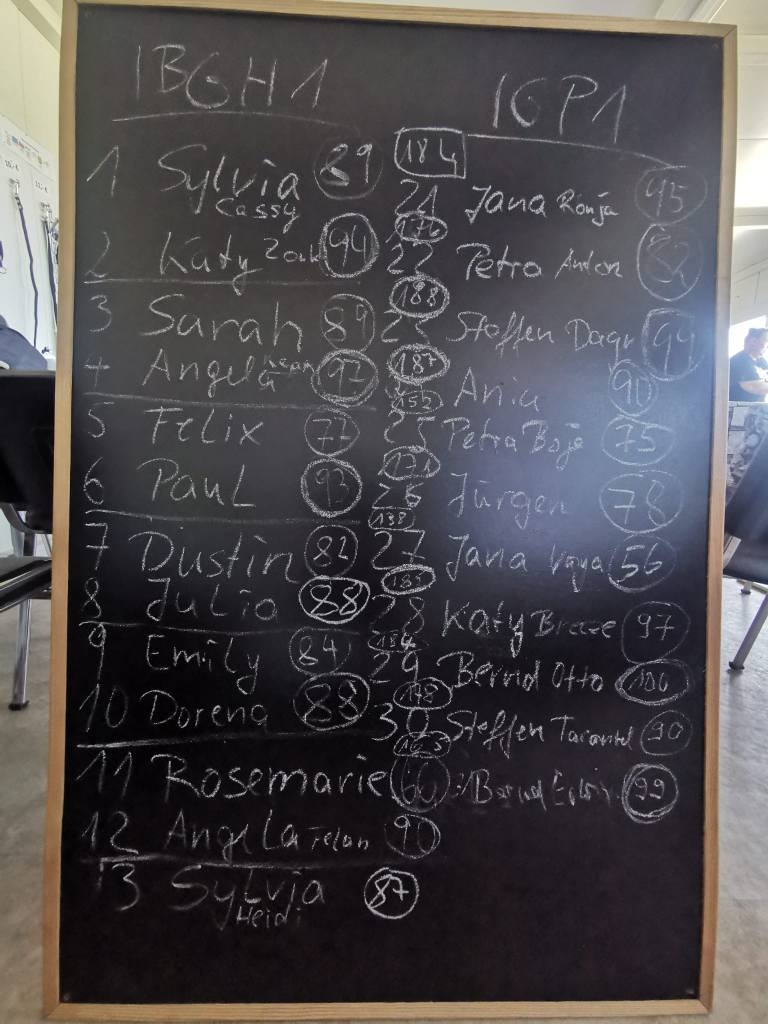 IBGH1
1 Sylvia 89
Cassy
2 Katy 94
3 Sarah 89
4 Angela 92
5 Felix 77
6 Paul 93
7 Dustin 82
8 Julia 88
9 Emily 84
10 Dorena 88
11 Rosemarie 60
12 Angela 90
13 Sylvia 87
Heidi
IGP1
184
21 Jana Ronja 95
176
22 Petra Anton 82
188
23 Steffen 94
187
Anja 90
152
25 Petra Bosje 75
171
26 Jürgen 78
138
27 Jana 56
185
28 Katy Breeze 97
184
29 Bernd Otto 100
178
30 Steffen Tarantel 90
Bernd 99